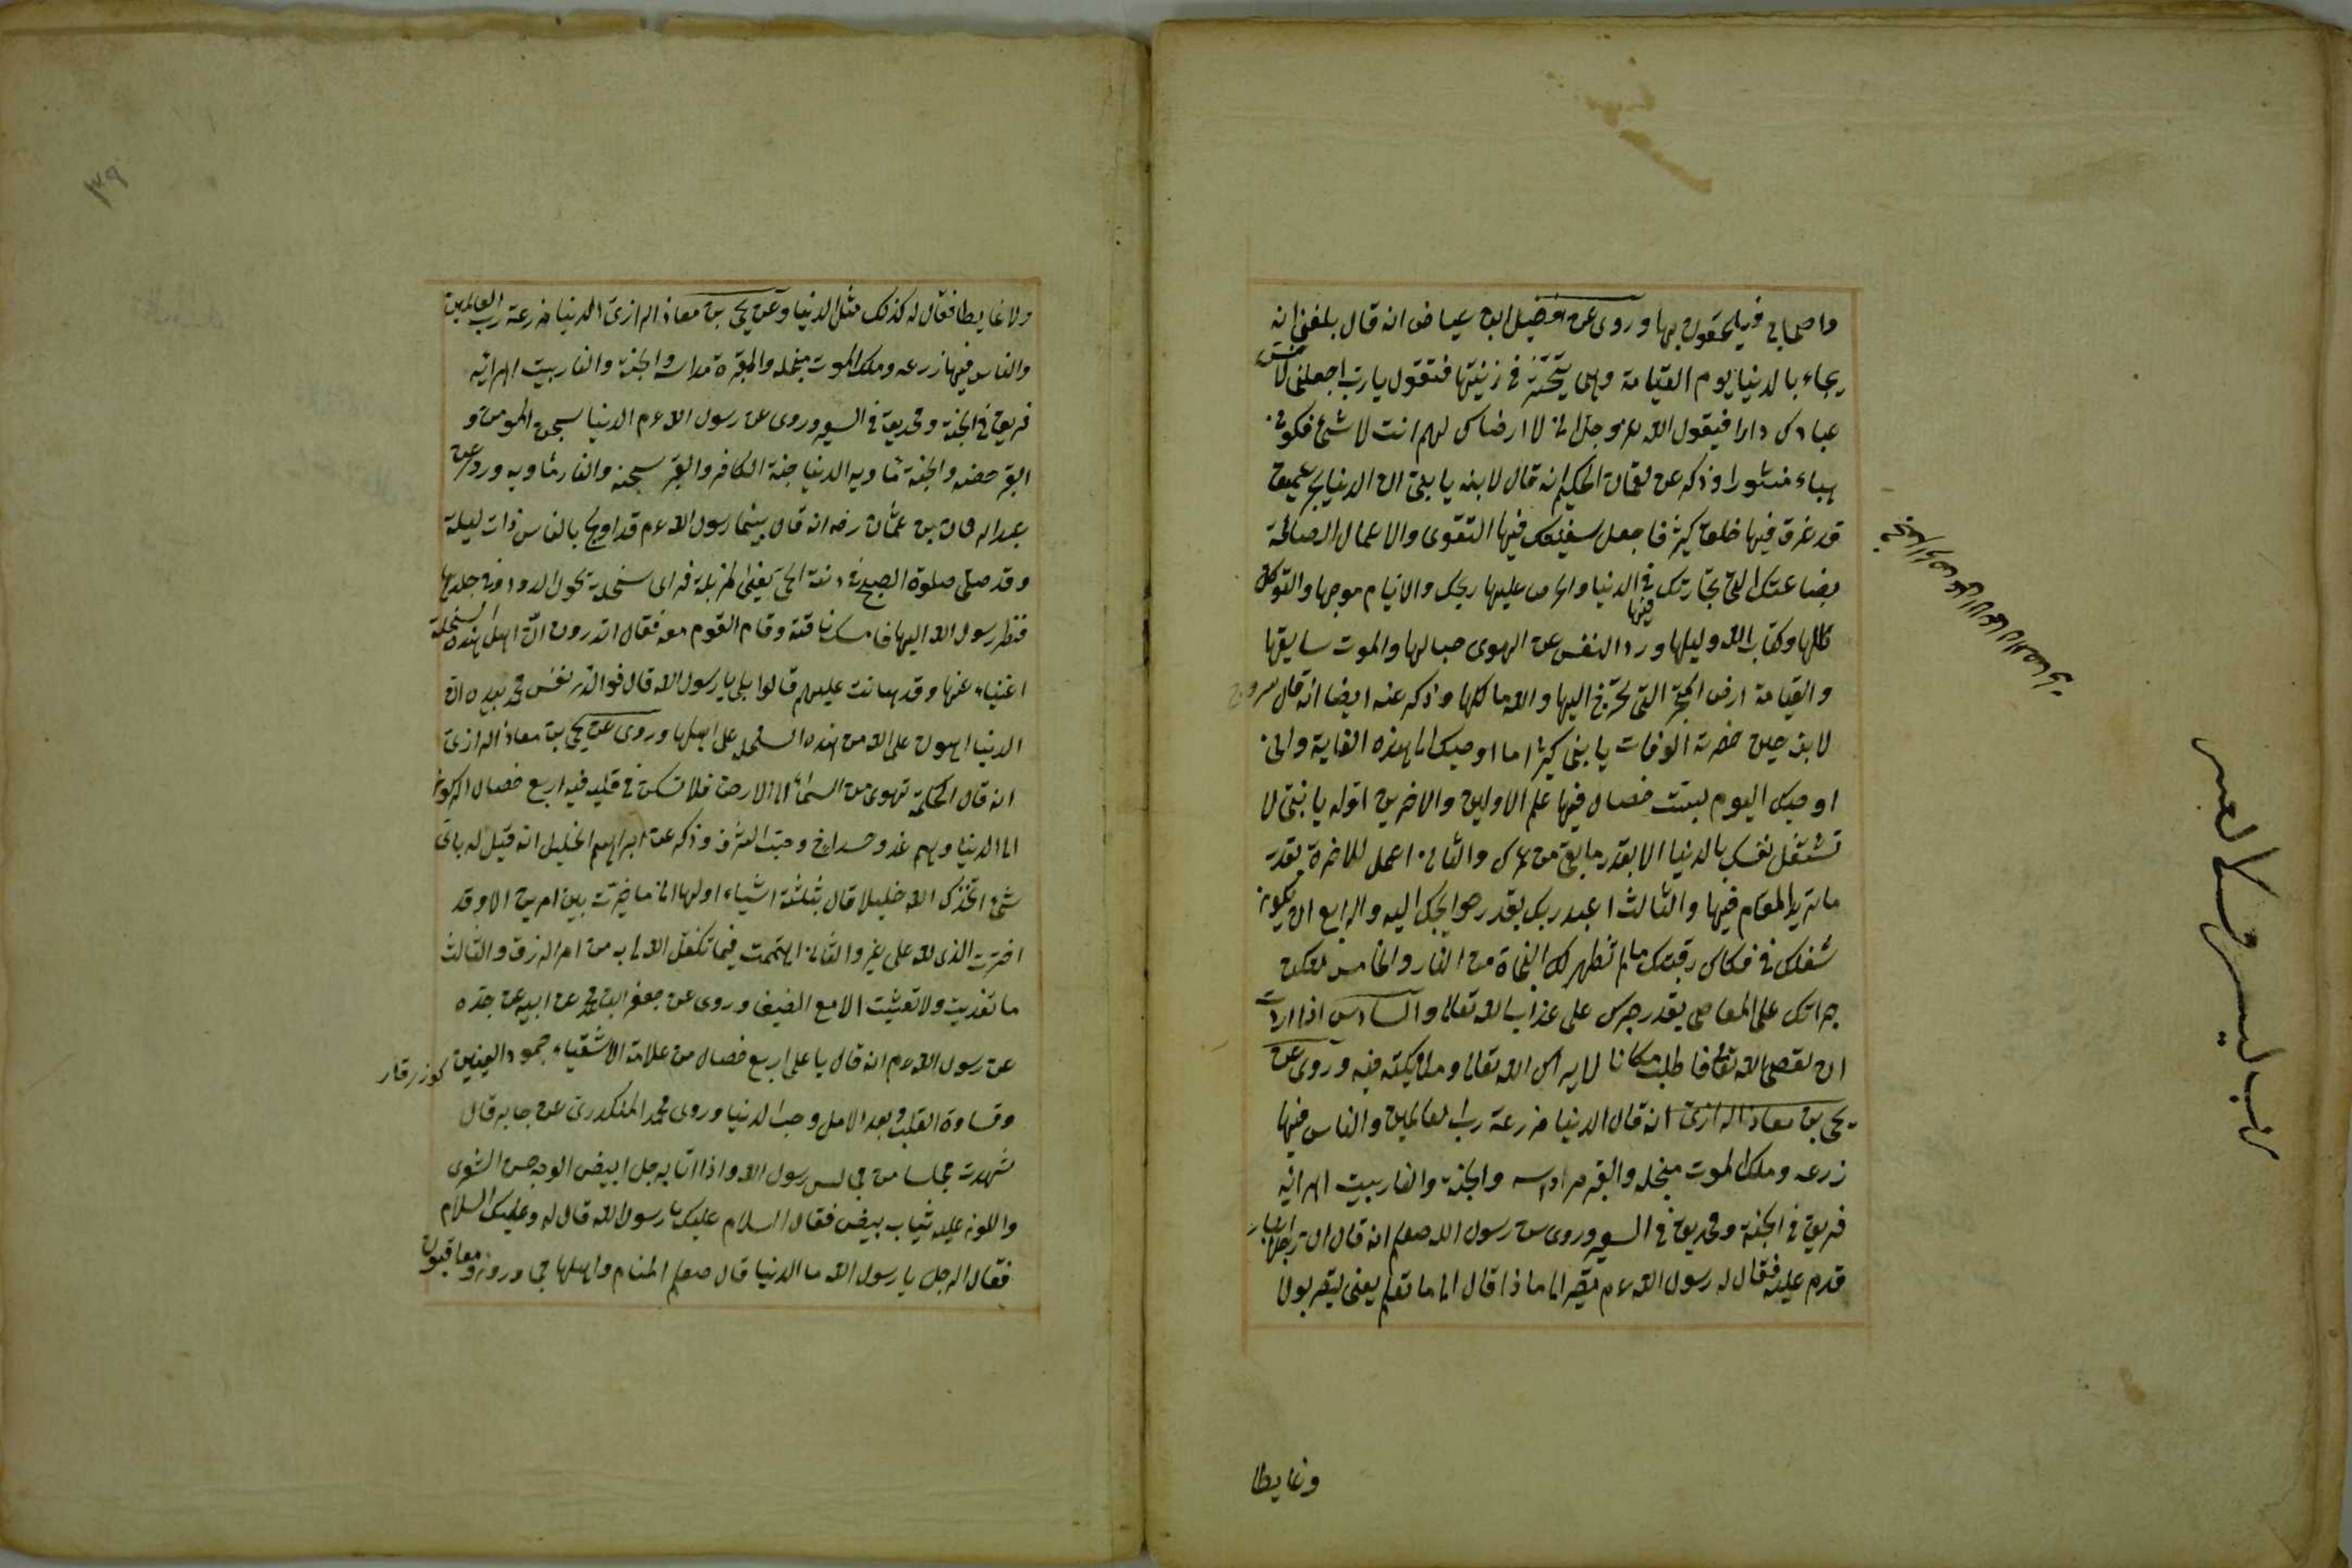 واصحابى فيلحقون بها وروى عن فضيل ابن عياض انه قال بلغنى انه
يجاء بالدنيا يوم القيامة وهى تتبختر فى زينتها فتقول يا رب اجعلنى
عبادك دارا فيقول الله عز وجل انى لا ارضاك لهم انت لا شئ فكونى
هباء منثورا وذكر عن لقمان الحكيم انه قال لابنه يا بنى ان الدنيا بحر عميق
قد غرق فيها خلق كثير فاجعل سفينتك فيها التقوى والاعمال الصالحة
بضاعتك التى تجارتك فيها فى الدنيا والحرص عليها ربحك والايام موجها والتوكل
ظلها وكتاب الله دليلها ورد النفس عن الهوى حبالها والموت ساحلها
والقيامة ارض المتجر التى تخرج اليها والله مالكها وذكر عنه ايضا انه قال
لابنه حين حضرته الوفات يا بنى كثيرا ما اوصيك الى هذه الغاية وانى
اوصيك اليوم بست خصال فيها علم الاولين والاخرين اوله يا بنى لا
تشتغل نفسك بالدنيا الا بقدر ما بقى من عمرك والثانى اعمل للاخرة بقدر
ما تريد المقام فيها والثالث اعبد ربك بقدر حوايجك اليه والرابع ان يكون
شغلك فى فكاك رقبتك ما لم تظهر لك النجاة من النار والخامس لتكن
جراتك على المعاصى بقدر صبرك على عذاب الله تعالى والسادس اذا اردت
ان تعصى الله تعالى فاطلب مكانا لا يراك الله تعالى وملائكته فيه وروى عن
يحى بن معاذ الرازى انه قال الدنيا مزرعة رب العالمين والناس فيها
زرعه وملك الموت منجله والقبر مداسه والجنة والنار بيت اهرائه
فريق فى الجنة وفريق فى السعير وروى عن رسول الله صلعم انه قال ان رجلا
قدم عليه فقال له رسول الله عم يصير الى ماذا قال الى ما تعلم يعنى يتصير بولا
وغايطا
٣٩
ولا غايطا فقال له كذلك مثل الدنيا وعن يحى بن معاذ الرازى الدنيا مزرعة رب العالمين
والناس فيها زرعه وملك الموت منجله والمقبرة مداسه والجنة والنار بيت اهرائه
فريق فى الجنة وفريق فى السعير وروى عن رسول الله عم الدنيا سجن المومن و
القبر حصنه والجنة ماويه الدنيا جنة الكافر والقبر سجنه والنار ماويه وروى عن
عبد الرحمان بن عثمان رضه انه قال بينما رسول الله عم قد اولج بالناس ذات ليلة
وقد صلى صلوة الصبح فى دمنة الحى يعنى المزبلة فراى سخلة تحول الدود فى جلدها
فنظر رسول الله اليها فامسك ناقته وقام القوم معه فقال اتدرون ان اهل هذه السخلة
اغنياء عنها وقد هانت عليهم قالوا بلى يا رسول الله قال فوالذى نفس محمد بيده ان
الدنيا اهون على الله من هذه السخلة على اهلها وروى عن يحى بن معاذ الرازى
انه قال الحكمة تهوى من السماء الى الارض فلا تسكن فى قلب فيه اربع خصال الركون
الى الدنيا وهم غد وحسد اخ وحب الشرف وذكر عن ابراهيم الخليل انه قيل له باى
شئ اتخذك الله خليلا قال بثلثة اشياء اولها انى ما خيرت بين امرين الا وقد
اخترت الذى لله على غيره والثانى ما اهتممت فيما تكفل الله لى به من امر الرزق والثالث
ما تغديت ولا تعشيت الا مع الضيف وروى عن جعفر ابن محمد عن ابيه عن جده
عن رسول الله عم انه قال يا على اربع خصال من علامة الاشقياء جمود العينين
وقساوة القلب وبعد الامل وحب الدنيا وروى محمد المنكدرى عن جابر قال
شهدت مجلسا من مجالس رسول الله واذا اتا رجل ابيض الوجه حسن الشعر
واللون عليه ثياب بيض فقال السلام عليك يا رسول الله قال له وعليك السلام
فقال الرجل يا رسول الله ما الدنيا قال صلعم المنام واهلها مجاورون ومعاقبون